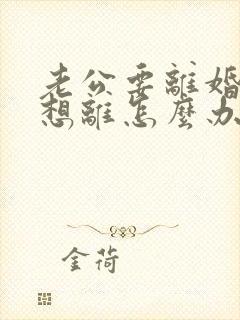 老公要離婚
想離怎麼办
金荷